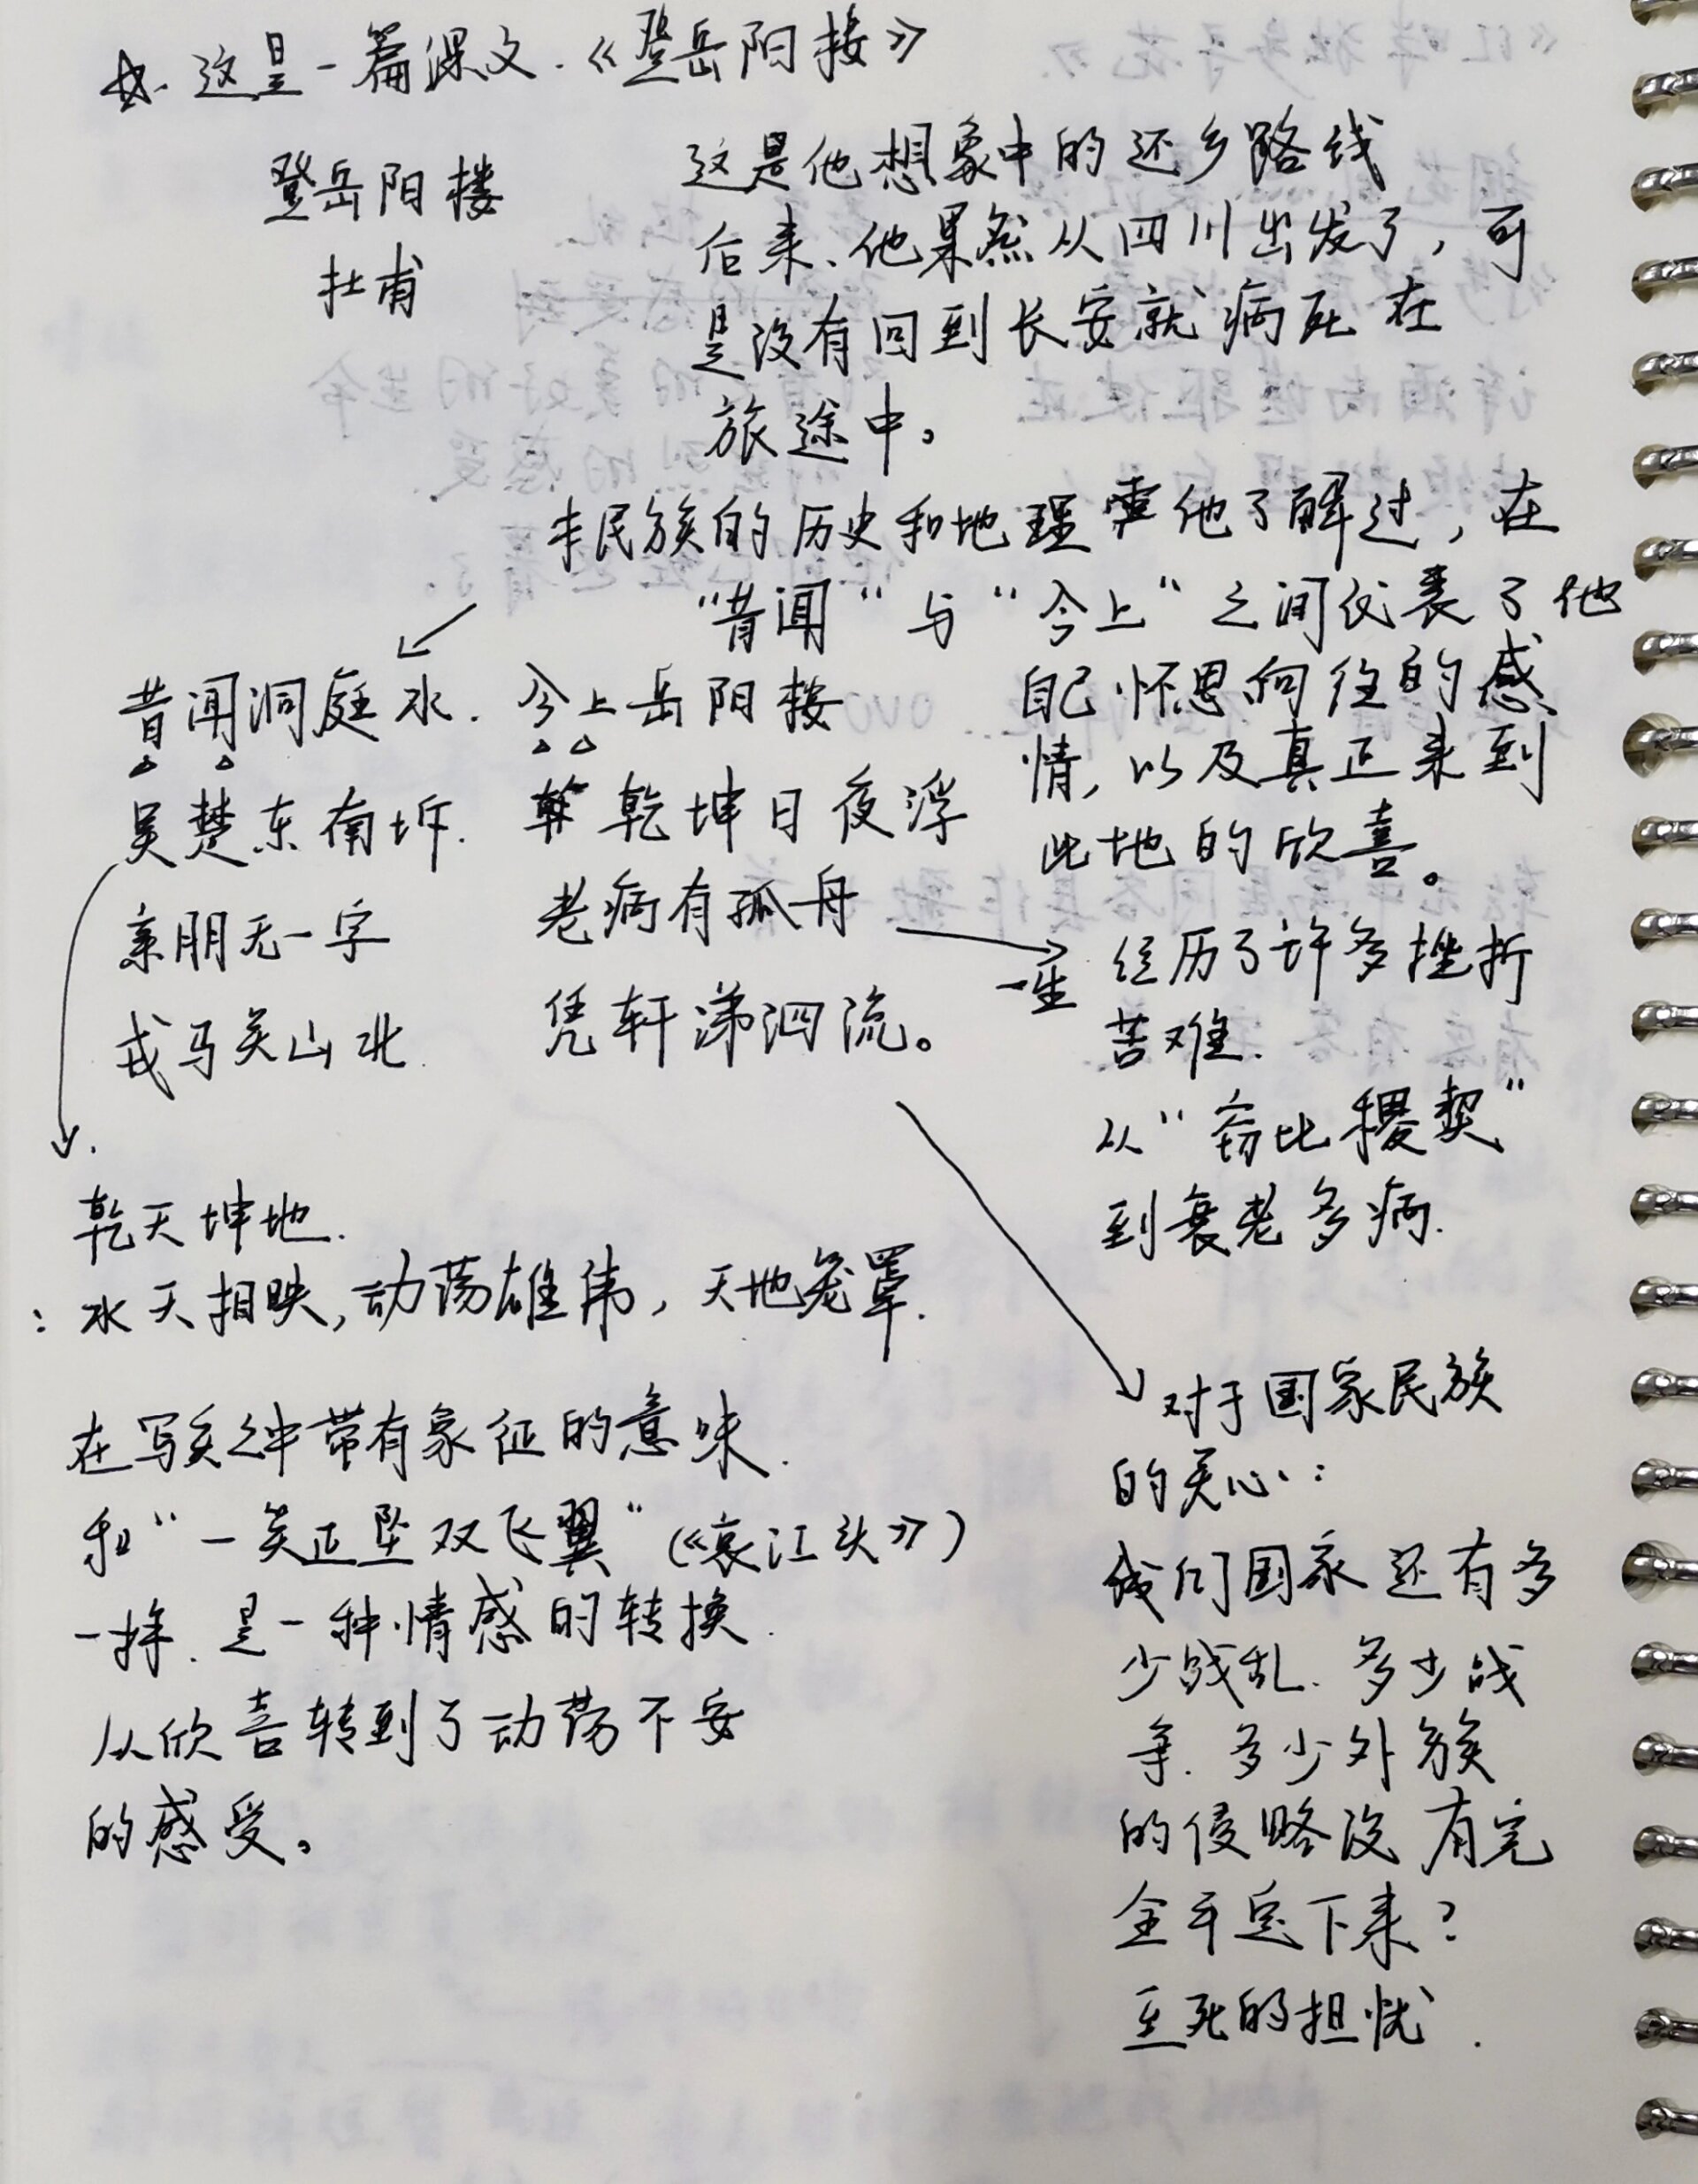 ☆. 这是一篇课文.《登岳阳楼》
登岳阳楼
杜甫
这是他想象中的还乡路线
后来、他果然从四川出发了，可
是没有回到长安就病死在
旅途中。
本民族的历史和地理他了解过，在
“昔闻”与“今上”之间代表了他
自己怀思向往的感
情，以及真正来到
此地的欣喜。
昔闻洞庭水. 今上岳阳楼
吴楚东南坼. 乾坤日夜浮
亲朋无一字 老病有孤舟
戎马关山北 凭轩涕泗流。
一生经历了许多挫折
苦难.
从“窃比稷契”
到衰老多病.
乾天坤地.
：水天相映，动荡雄伟，天地笼罩.
在写实之中带有象征的意味.
和“一笑正坠双飞翼”（《哀江头》）
一样. 是一种情感的转换.
从欣喜转到了动荡不安
的感受。
对于国家民族
的关心：
我们国家还有多
少战乱. 多少战
争. 多少外族
的侵略没有完
全平定下来？
至死的担忧.